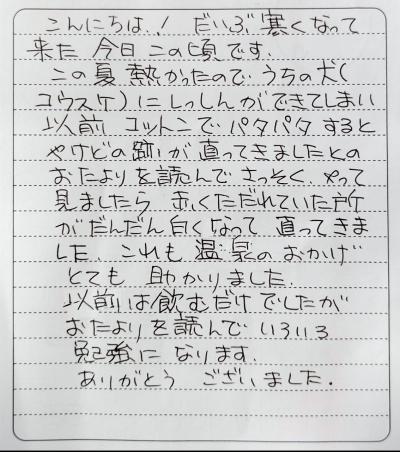 こんにちは！ だいぶ寒くなって
来た今日この頃です.
この夏熱かったので うちの犬(
コウスケ)にしっしんができてしまい
以前 コットンで パタパタ すると
やけどの跡が 直ってきましたとの
おたよりを読んで さっそく やって
見ましたら 赤くただれていた所
がだんだん白くなって 直ってきま
した. これも 温泉の おかげ
とても 助かりました.
以前は飲むだけ でしたが
おたよりを読んで いろいろ
勉強に なります.
ありがとう ございました.